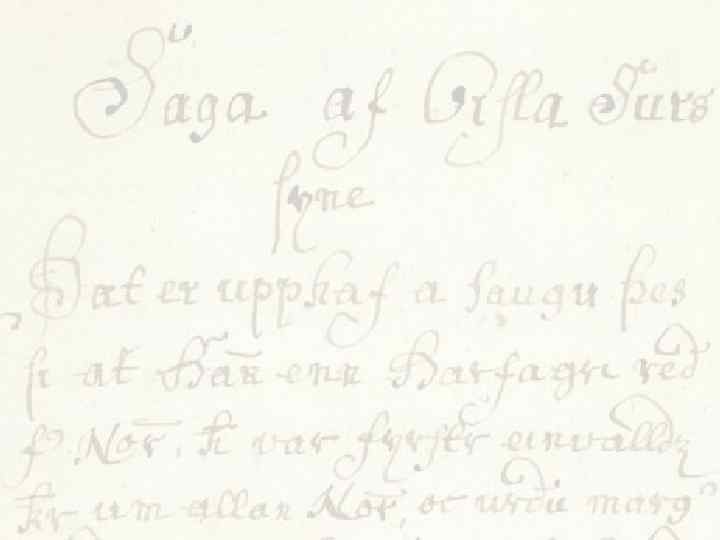 Saga af Gisla Surs
syne
Þat er upphaf a saugu þes
si at Har̄ enn Harfagri red
f. Nor̄. h̄ var fyrstr einvallds
k̄r um allan Nor̄, oc urdu marg